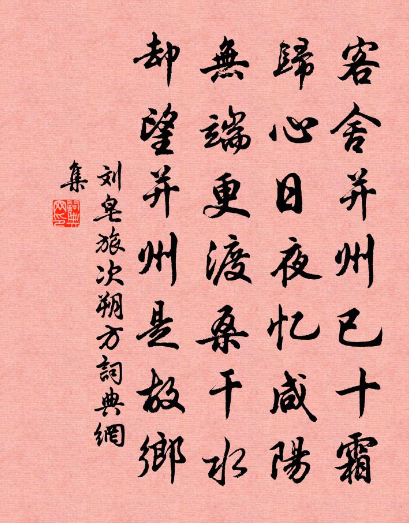 客舍并州已十霜
歸心日夜忆咸陽
無端更渡桑干水
却望并州是故鄉
刘皂旅次朔方詞典網
集